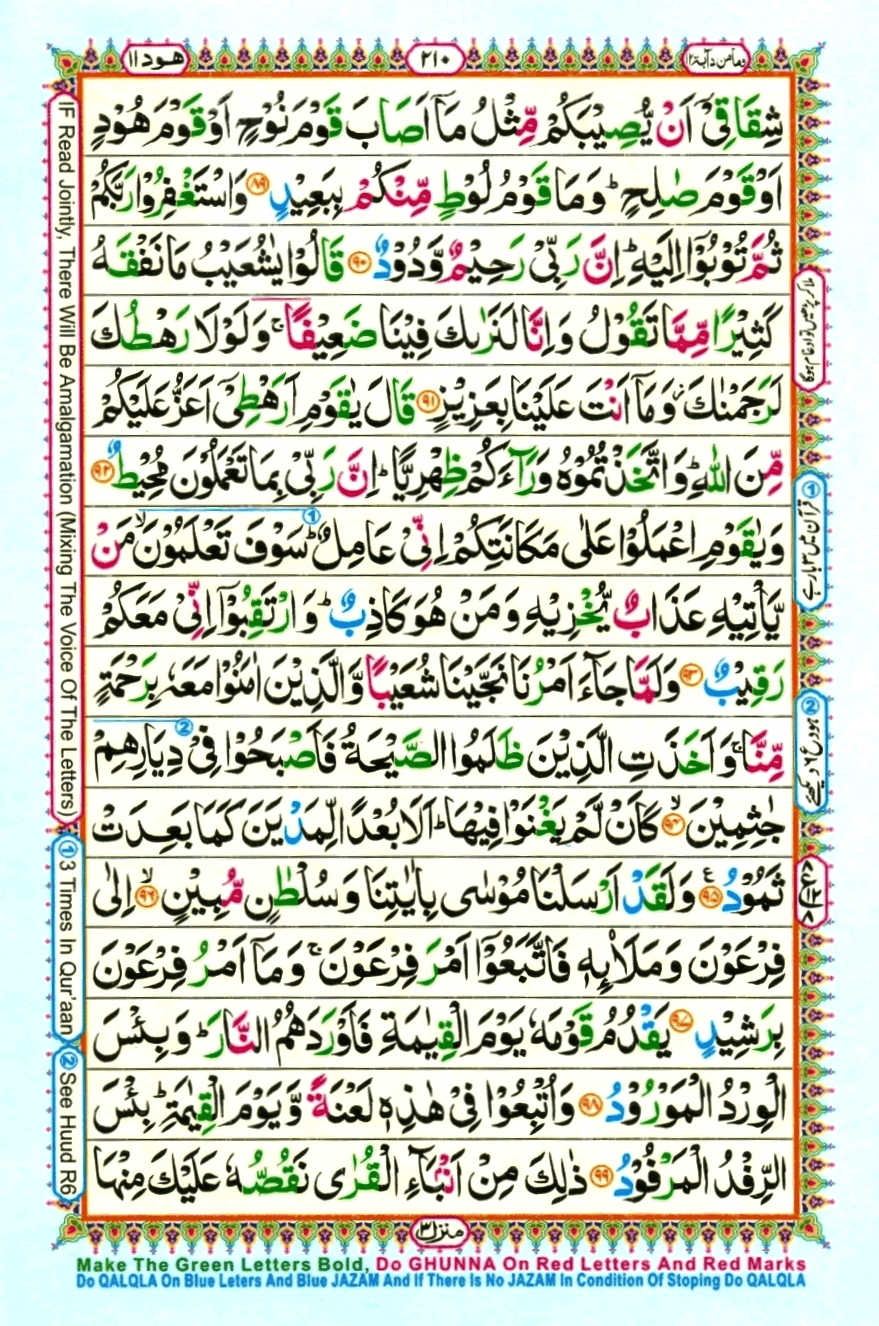 ومامن دآبة١٢
٢١٠
هود١١
شِقَاقِيْٓ اَنْ يُّصِيْبَكُمْ مِّثْلُ مَآ اَصَابَ قَوْمَ نُوْحٍ اَوْ قَوْمَ هُوْدٍ
اَوْ قَوْمَ صٰلِحٍ ؕ وَمَا قَوْمُ لُوْطٍ مِّنْكُمْ بِبَعِيْدٍ ۸۹ وَاسْتَغْفِرُوْا رَبَّكُمْ
ثُمَّ تُوْبُوْٓا اِلَيْهِ ؕ اِنَّ رَبِّيْ رَحِيْمٌ وَّدُوْدٌ ۹۰ قَالُوْا يٰشُعَيْبُ مَا نَفْقَهُ
كَثِيْرًا مِّمَّا تَقُوْلُ وَاِنَّا لَنَرٰىكَ فِيْنَا ضَعِيْفًا ۚ وَلَوْلَا رَهْطُكَ
لَرَجَمْنٰكَ ؗ وَمَآ اَنْتَ عَلَيْنَا بِعَزِيْزٍ ۹۱ قَالَ يٰقَوْمِ اَرَهْطِيْٓ اَعَزُّ عَلَيْكُمْ
مِّنَ اللّٰهِ ؕ وَاتَّخَذْتُمُوْهُ وَرَآءَكُمْ ظِهْرِيًّا ؕ اِنَّ رَبِّيْ بِمَا تَعْمَلُوْنَ مُحِيْطٌ ۹۲
وَيٰقَوْمِ اعْمَلُوْا عَلٰى مَكَانَتِكُمْ اِنِّيْ عَامِلٌ ؕ ① سَوْفَ تَعْلَمُوْنَ ۙ مَنْ
يَّاْتِيْهِ عَذَابٌ يُّخْزِيْهِ وَمَنْ هُوَ كَاذِبٌ ؕ وَارْتَقِبُوْٓا اِنِّيْ مَعَكُمْ
رَقِيْبٌ ۹۳ وَلَمَّا جَآءَ اَمْرُنَا نَجَّيْنَا شُعَيْبًا وَّالَّذِيْنَ اٰمَنُوْا مَعَهٗ بِرَحْمَةٍ
مِّنَّا ۚ وَاَخَذَتِ الَّذِيْنَ ظَلَمُوا الصَّيْحَةُ فَاَصْبَحُوْا ② فِيْ دِيَارِهِمْ
جٰثِمِيْنَ ۙ ۹۴ كَاَنْ لَّمْ يَغْنَوْا فِيْهَا ؕ اَلَا بُعْدًا لِّمَدْيَنَ كَمَا بَعِدَتْ
ثَمُوْدُ ۹۵ ع وَلَقَدْ اَرْسَلْنَا مُوْسٰى بِاٰيٰتِنَا وَسُلْطٰنٍ مُّبِيْنٍ ۙ ۹۶ اِلٰى
فِرْعَوْنَ وَمَلَا۟ئِهٖ فَاتَّبَعُوْٓا اَمْرَ فِرْعَوْنَ ۚ وَمَآ اَمْرُ فِرْعَوْنَ
بِرَشِيْدٍ ۹۷ يَقْدُمُ قَوْمَهٗ يَوْمَ الْقِيٰمَةِ فَاَوْرَدَهُمُ النَّارَ ؕ وَبِئْسَ
الْوِرْدُ الْمَوْرُوْدُ ۹۸ وَاُتْبِعُوْا فِيْ هٰذِهٖ لَعْنَةً وَّيَوْمَ الْقِيٰمَةِ ؕ بِئْسَ
الرِّفْدُ الْمَرْفُوْدُ ۹۹ ذٰلِكَ مِنْ اَنْۢبَآءِ الْقُرٰى نَقُصُّهٗ عَلَيْكَ مِنْهَا
ملا کر پڑھیں تو ادغام ہوگا
① قرآن میں ۳ بار ہے
② ہود ع ۶ دیکھئے
۸ ع ۱۲ ۸
منزل۳
IF Read Jointly, There Will Be Amalgamation (Mixing The Voice Of The Letters)
① 3 Times In Qur'aan
② See Huud R6
Make The Green Letters Bold, Do GHUNNA On Red Letters And Red Marks
Do QALQLA On Blue Leters And Blue JAZAM And If There Is No JAZAM In Condition Of Stoping Do QALQLA